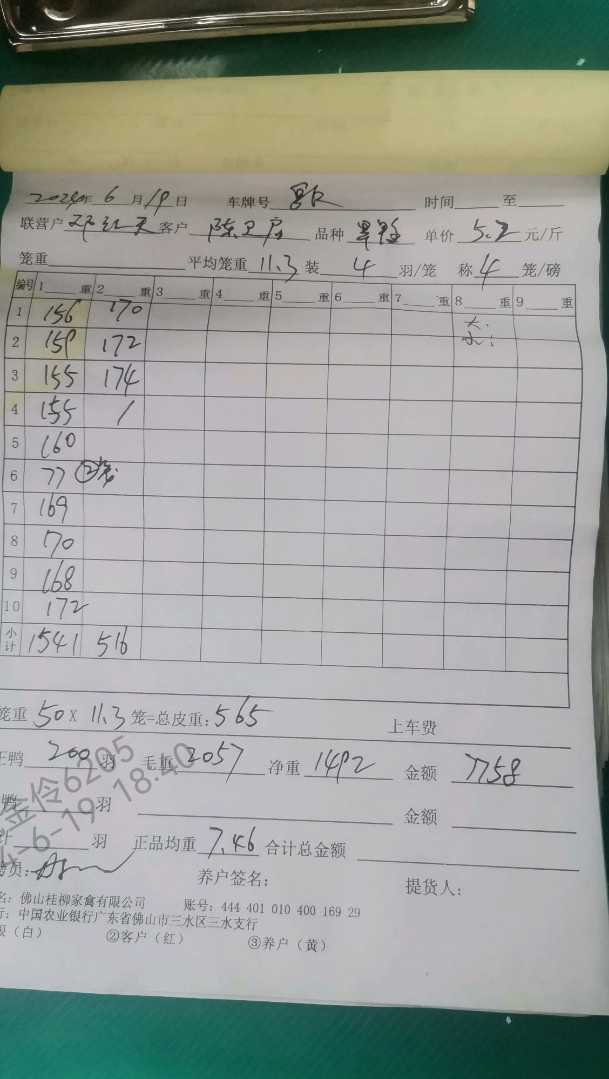 2024年 6 月 19 日 车牌号 时间 至
联营户 邓红天 客户 陈卫房 品种 单价 5.2 元/斤
笼重 平均笼重 11.3 装 4 羽/笼 称 4 笼/磅
编号 1 重 2 重 3 重 4 重 5 重 6 重 7 重 8 重 9 重
1 156 170
2 159 172
3 155 174
4 155 /
5 160
6 77 ②笼
7 169
8 170
9 168
10 172
小计 1541 516
笼重 50 x 11.3 笼=总皮重: 565 上车费
正鸭 200 羽 毛重 2057 净重 1492 金额 7758
鸭 羽 金额
羽 正品均重 7.46 合计总金额
金伶6205
4-6-19 18:40
员: 养户签名: 提货人:
名: 佛山桂柳家禽有限公司 账号: 444 401 010 400 169 29
行: 中国农业银行广东省佛山市三水区三水支行
(白) ②客户(红) ③养户(黄)